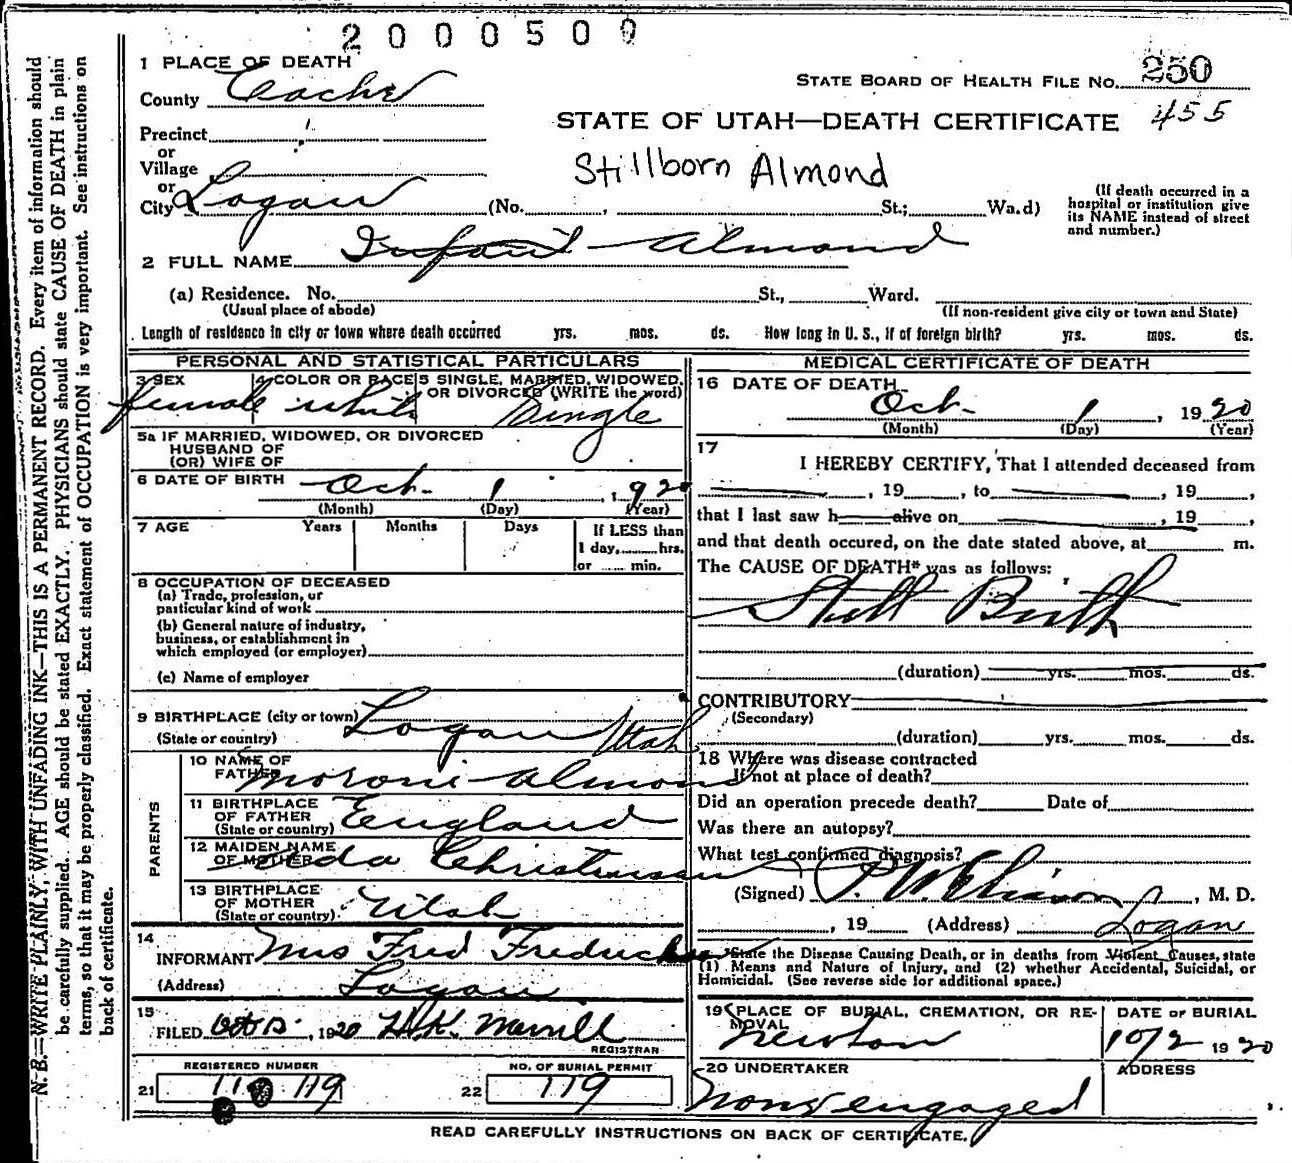 2000500
1 PLACE OF DEATH
STATE BOARD OF HEALTH FILE NO. 250
County Cache
STATE OF UTAH—DEATH CERTIFICATE 455
Precinct
or
Village
Stillborn Almond
or
City Logan (No. , St.; Wa.d)
(If death occurred in a
hospital or institution give
its NAME instead of street
and number.)
2 FULL NAME Infant Almond
(a) Residence. No. St., Ward.
(Usual place of abode) (If non-resident give city or town and State)
Length of residence in city or town where death occurred yrs. mos. ds. How long in U. S., if of foreign birth? yrs. mos. ds.
PERSONAL AND STATISTICAL PARTICULARS
3 SEX 4 COLOR OR RACE 5 SINGLE, MARRIED, WIDOWED,
OR DIVORCED (WRITE the word)
female white Single
5a IF MARRIED, WIDOWED, OR DIVORCED
HUSBAND OF
(OR) WIFE OF
6 DATE OF BIRTH Oct. 1, 1920
(Month) (Day) (Year)
7 AGE Years Months Days If LESS than
1 day, hrs.
or min.
8 OCCUPATION OF DECEASED
(a) Trade, profession, or
particular kind of work
(b) General nature of industry,
business, or establishment in
which employed (or employer)
(c) Name of employer
9 BIRTHPLACE (city or town) Logan Utah
(State or country)
PARENTS
10 NAME OF
FATHER Moroni Almond
11 BIRTHPLACE
OF FATHER England
(State or country)
12 MAIDEN NAME
OF MOTHER Ada Christensen
13 BIRTHPLACE
OF MOTHER Utah
(State or country)
14
INFORMANT Mrs Fred
(Address) Logan
15
FILED Oct , 1920 H.K. Merrill
REGISTRAR
REGISTERED NUMBER NO. OF BURIAL PERMIT
21 119 22 119
MEDICAL CERTIFICATE OF DEATH
16 DATE OF DEATH
Oct. 1, 1920
(Month) (Day) (Year)
17
I HEREBY CERTIFY, That I attended deceased from
, 19 , to , 19 ,
that I last saw h alive on , 19 ,
and that death occured, on the date stated above, at m.
The CAUSE OF DEATH* was as follows:
Still Birth
(duration) yrs. mos. ds.
CONTRIBUTORY
(Secondary)
(duration) yrs. mos. ds.
18 Where was disease contracted
if not at place of death?
Did an operation precede death? Date of
Was there an autopsy?
What test confirmed diagnosis?
(Signed) , M. D.
, 19 (Address) Logan
*State the Disease Causing Death, or in deaths from Violent Causes, state
(1) Means and Nature of Injury, and (2) whether Accidental, Suicidal, or
Homicidal. (See reverse side for additional space.)
19 PLACE OF BURIAL, CREMATION, OR RE-
MOVAL DATE OF BURIAL
Newton 10/2 1920
20 UNDERTAKER ADDRESS
None engaged
READ CAREFULLY INSTRUCTIONS ON BACK OF CERTIFICATE.
N. B.—WRITE PLAINLY, WITH UNFADING INK—THIS IS A PERMANENT RECORD. Every item of information should
be carefully supplied. AGE should be stated EXACTLY. PHYSICIANS should state CAUSE OF DEATH in plain
terms, so that it may be properly classified. Exact statement of OCCUPATION is very important. See instructions on
back of certificate.